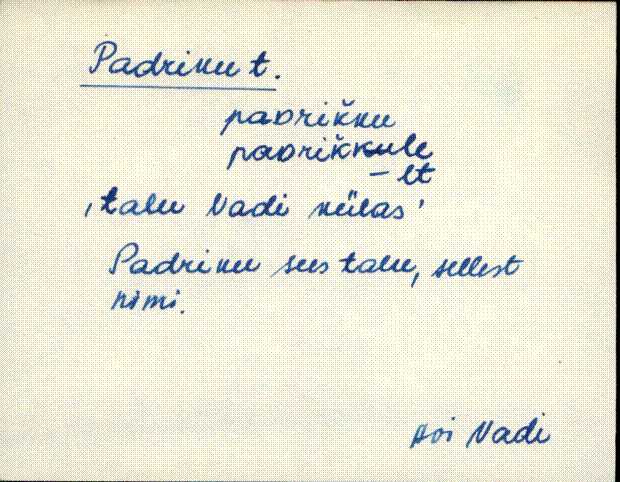 Padriku t.
paᴅriǩku
paᴅriǩkule
– lt
‚talu Vadi külas'
Padriku sees talu, sellest
nimi.
Avi Vadi